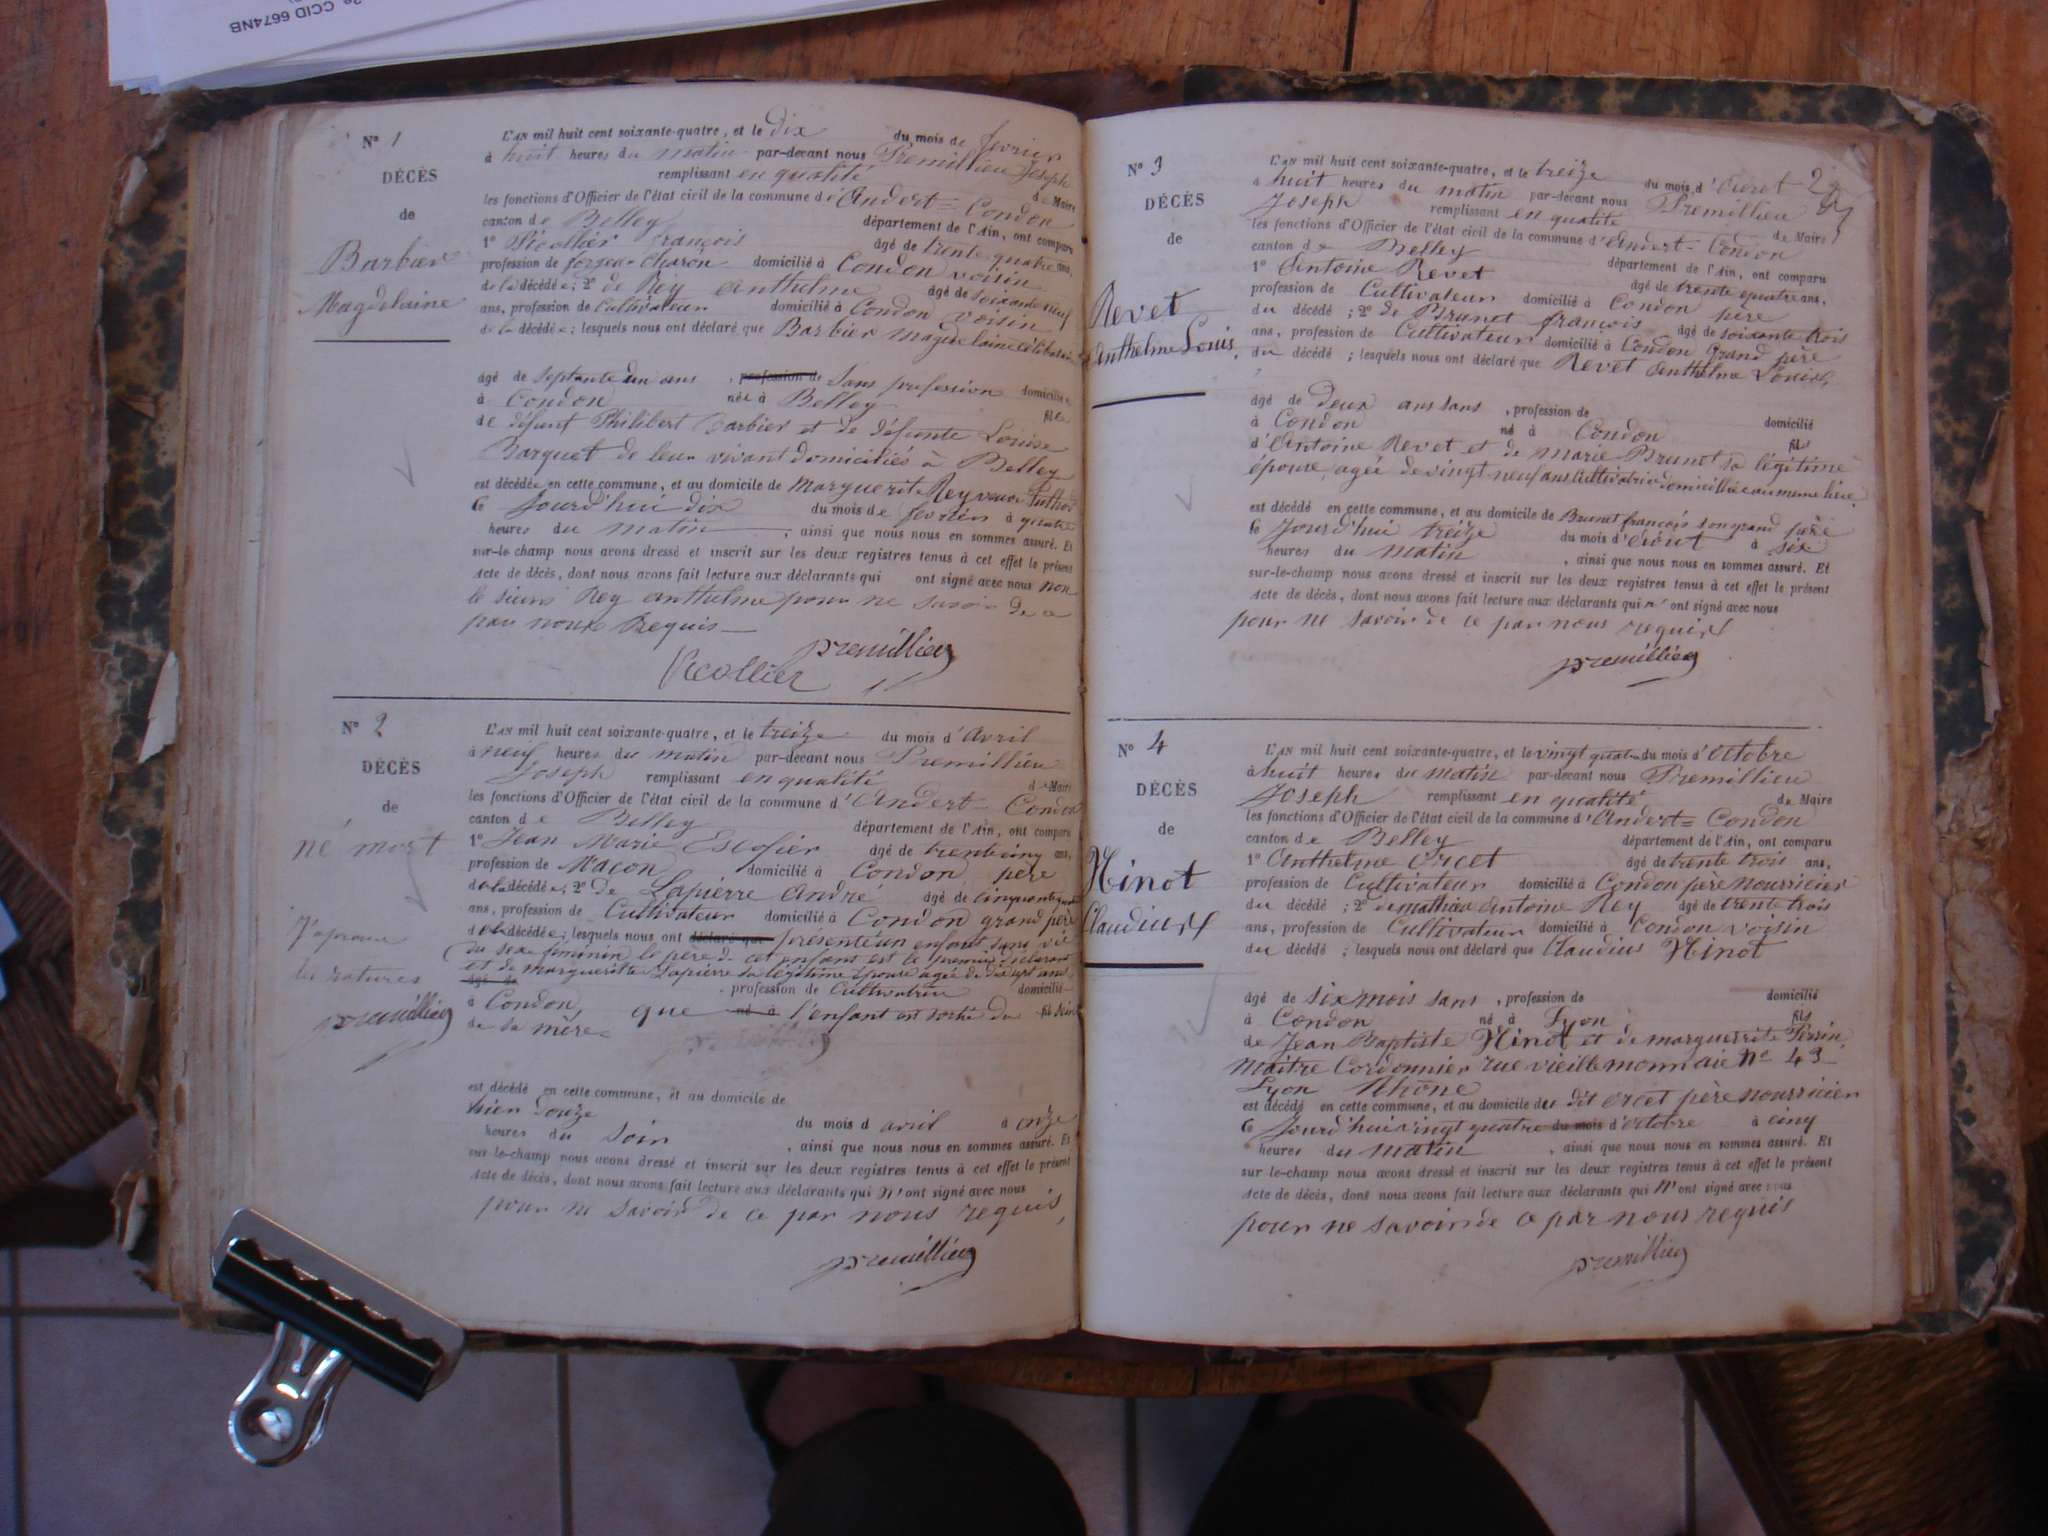 CCID 6674NB
N° 1
DÉCÈS
de
Barbier
Magdelaine
L'AN mil huit cent soixante-quatre, et le dix du mois de février
à huit heures du matin par-devant nous Premillieu Joseph
remplissant en qualité de Maire
les fonctions d'Officier de l'état civil de la commune d'Andert-Condon
canton de Belley département de l'Ain, ont comparu
1° Récollier françois âgé de trente quatre ans,
profession de Charon domicilié à Condon voisin
de la décédée; 2° de Rey anthelme âgé de soixante neuf
ans, profession de Cultivateur domicilié à Condon voisin
de la décédée; lesquels nous ont déclaré que Barbier magdelaine célibataire
âgé de septante un ans, profession de Sans profession domiciliée
à Condon née à Belley fille
de défunt Philibert Barbier et de défunte Louise
Barquet de leur vivant domiciliés à Belley
est décédée en cette commune, et au domicile de Marguerite Rey veuve
le Jourd'hui dix du mois de février à quatre
heures du matin, ainsi que nous nous en sommes assuré. Et
sur-le-champ nous avons dressé et inscrit sur les deux registres tenus à cet effet le présent
acte de décès, dont nous avons fait lecture aux déclarants qui ont signé avec nous non
le sieur Rey anthelme pour ne savoir de ce
par nous Requis
premillieu
Récollier
N° 2
DÉCÈS
de
né mort
J'aprouve
les ratures
premillieu
L'AN mil huit cent soixante-quatre, et le treize du mois d'Avril
à neuf heures du matin par-devant nous Premillieu
Joseph remplissant en qualité de Maire
les fonctions d'Officier de l'état civil de la commune d'Andert-Condon
canton de Belley département de l'Ain, ont comparu
1° Jean Marie Escofier âgé de trente cinq ans,
profession de Maçon domicilié à Condon père
de la décédée; 2° de Lapierre André âgé de cinquante
ans, profession de Cultivateur domicilié à Condon grand père
de la décédée; lesquels nous ont déclaré que présenté un enfant sans vie
du sexe féminin le père de cet enfant est le premier déclarant
et de marguerite Lapierre sa légitime épouse agée de dix sept ans
âgé de
profession de Cultivatrice domicilié
à Condon, que né à l'enfant est sortie du fil Sein
de sa mère
est décédé en cette commune, et au domicile de
hier douze du mois d avril à onze
heures du soir, ainsi que nous nous en sommes assuré. Et
sur-le-champ nous avons dressé et inscrit sur les deux registres tenus à cet effet le présent
acte de décès, dont nous avons fait lecture aux déclarants qui n'ont signé avec nous
pour ne savoir de ce par nous requis,
premillieu
N° 3
DÉCÈS
de
Revet
Anthelme Louis,
L'AN mil huit cent soixante-quatre, et le treize du mois d'Août 2
à huit heures du matin par-devant nous Premillieu
Joseph remplissant en qualité de Maire
les fonctions d'Officier de l'état civil de la commune d'Andert-Condon
canton de Belley département de l'Ain, ont comparu
1° Antoine Revet âgé de trente quatre ans,
profession de Cultivateur domicilié à Condon père
du décédé; 2° de Brunet françois âgé de soixante trois
ans, profession de Cultivateur domicilié à Condon Grand père
du décédé; lesquels nous ont déclaré que Revet Anthelme Louis,
âgé de deux ans sans, profession de domicilié
à Condon né à Condon fils
d'Antoine Revet et de Marie Brunet sa légitime
épouse, agée de vingt neuf ans Cultivatrice domiciliée au même lieu
est décédé en cette commune, et au domicile de Brunet françois son grand père
le Jourd'hui treize du mois d'Août à six
heures du matin, ainsi que nous nous en sommes assuré. Et
sur-le-champ nous avons dressé et inscrit sur les deux registres tenus à cet effet le présent
acte de décès, dont nous avons fait lecture aux déclarants qui n'ont signé avec nous
pour ne savoir de ce par nous requis
premillieu
N° 4
DÉCÈS
de
Ninot
Claudius
L'AN mil huit cent soixante-quatre, et le vingt quatre du mois d'Octobre
à huit heures du matin par-devant nous Premillieu
Joseph remplissant en qualité de Maire
les fonctions d'Officier de l'état civil de la commune d'Andert-Condon
canton de Belley département de l'Ain, ont comparu
1° Anthelme Orcet âgé de trente trois ans,
profession de Cultivateur domicilié à Condon père nourricier
du décédé; 2° de mathieu Antoine Rey âgé de trente trois
ans, profession de Cultivateur domicilié à Condon voisin
du décédé; lesquels nous ont déclaré que Claudius Ninot
âgé de six mois sans, profession de domicilié
à Condon né à Lyon fils
de Jean Baptiste Ninot et de marguerite Perrin
Maître Cordonnier rue vieille monnaie N° 43
Lyon Rhône
est décédé en cette commune, et au domicile du dit Orcet père nourricier
le Jourd'hui vingt quatre du mois d'octobre à cinq
heures du matin, ainsi que nous nous en sommes assuré. Et
sur-le-champ nous avons dressé et inscrit sur les deux registres tenus à cet effet le présent
acte de décès, dont nous avons fait lecture aux déclarants qui n'ont signé avec nous
pour ne savoir de ce par nous requis
premillieu